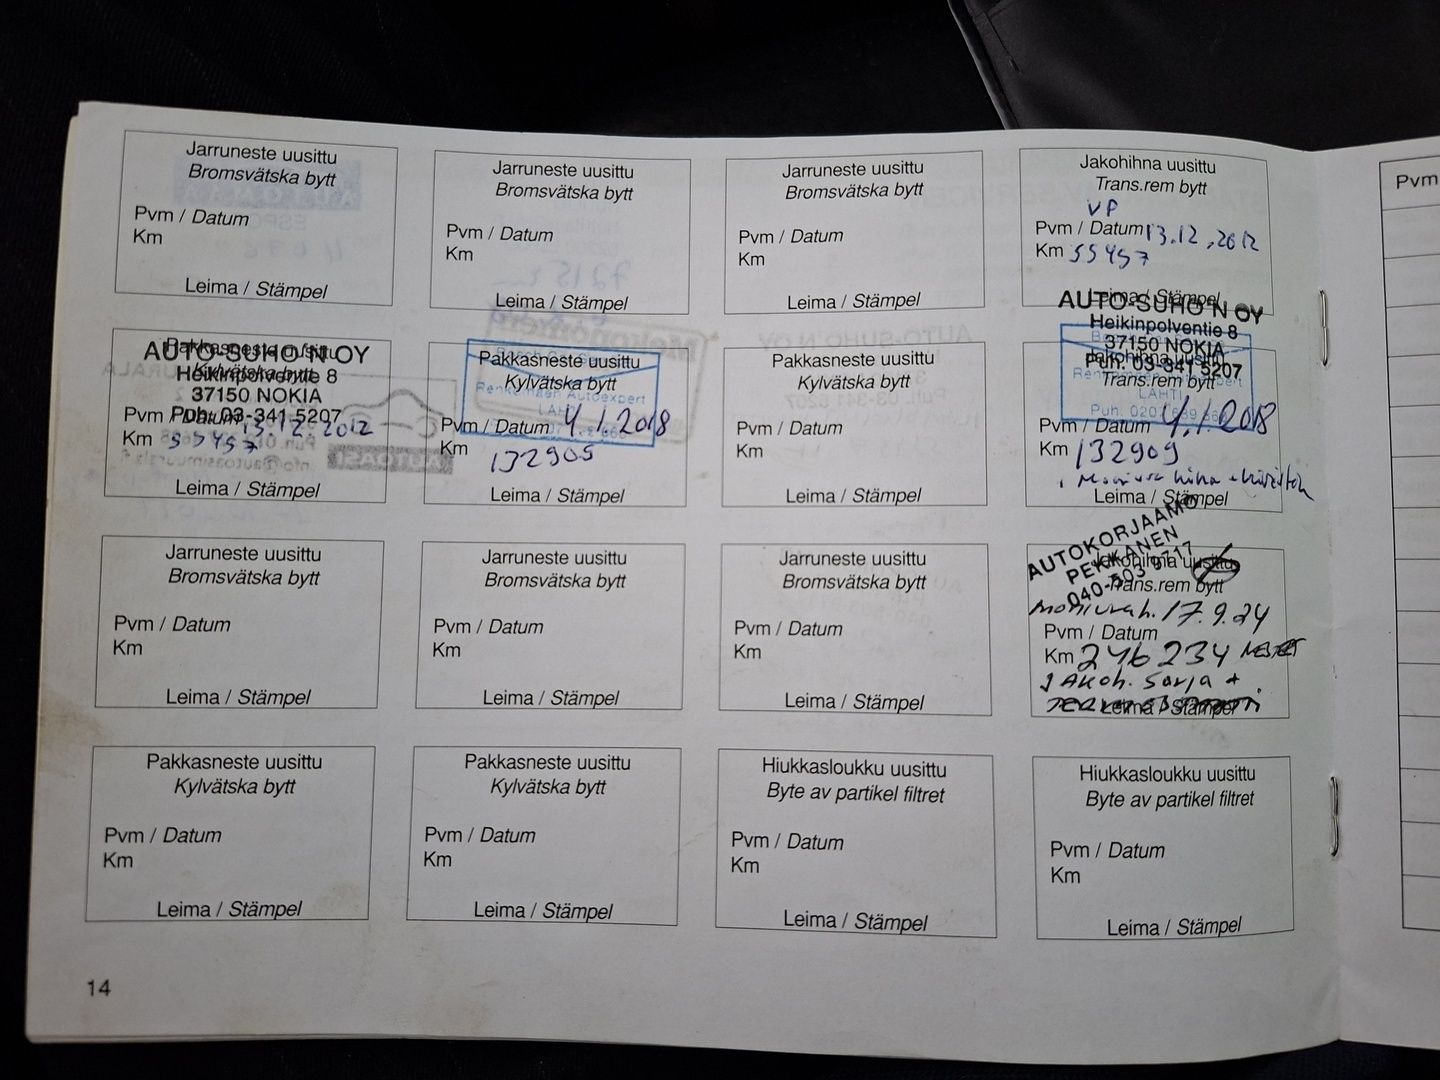 Jarruneste uusittu
Bromsvätska bytt
Pvm / Datum
Km
Leima / Stämpel
Jarruneste uusittu
Bromsvätska bytt
Pvm / Datum
Km
Leima / Stämpel
Jarruneste uusittu
Bromsvätska bytt
Pvm / Datum
Km
Leima / Stämpel
Jakohihna uusittu
Trans.rem bytt
VP
Pvm / Datum 13.12.2012
Km 55457
Leima / Stämpel
AUTO-SUHO'N OY
Heikinpolventie 8
37150 NOKIA
Puh. 03-341 5207
Pakkasneste uusittu
Kylvätska bytt
AUTO-SUHO'N OY
Heikinpolventie 8
37150 NOKIA
Puh. 03-341 5207
Pvm / Datum 13.12.2012
Km 55457
Leima / Stämpel
Pakkasneste uusittu
Kylvätska bytt
Autoexpert
LAHTI
Pvm / Datum 4.1.2018
Km 132909
Leima / Stämpel
Pakkasneste uusittu
Kylvätska bytt
Pvm / Datum
Km
Leima / Stämpel
Jakohihna uusittu
Trans.rem bytt
LAHTI
Pvm / Datum 4.1.2018
Km 132909
Leima / Stämpel
Jarruneste uusittu
Bromsvätska bytt
Pvm / Datum
Km
Leima / Stämpel
Jarruneste uusittu
Bromsvätska bytt
Pvm / Datum
Km
Leima / Stämpel
Jarruneste uusittu
Bromsvätska bytt
Pvm / Datum
Km
Leima / Stämpel
AUTOKORJAAMO
PEKKANEN
040-503 9717
Jakohihna uusittu
Trans.rem bytt
moniurah. 17.9.24
Pvm / Datum
Km 246234
JAKOH. Sarja +
Leima / Stämpel
Pakkasneste uusittu
Kylvätska bytt
Pvm / Datum
Km
Leima / Stämpel
Pakkasneste uusittu
Kylvätska bytt
Pvm / Datum
Km
Leima / Stämpel
Hiukkasloukku uusittu
Byte av partikel filtret
Pvm / Datum
Km
Leima / Stämpel
Hiukkasloukku uusittu
Byte av partikel filtret
Pvm / Datum
Km
Leima / Stämpel
14
Pvm